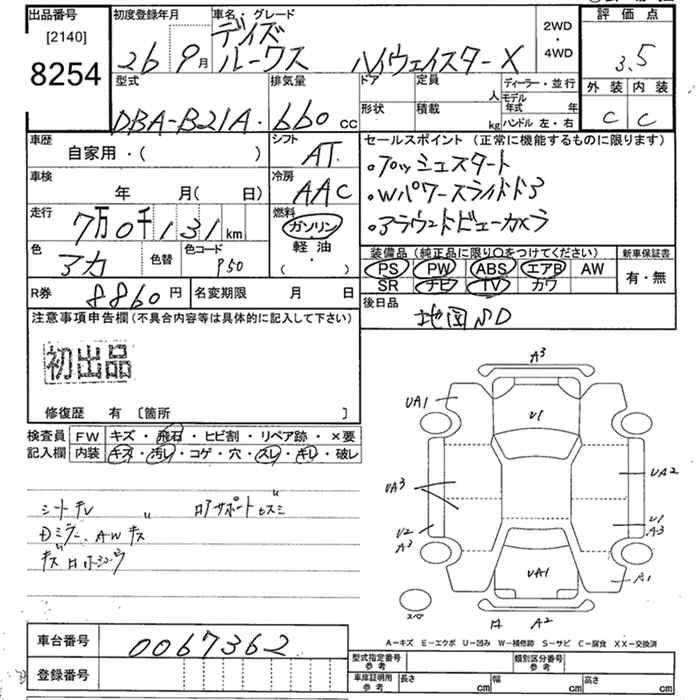 出品番号
[2140]
8254
初度登録年月
26 9月
車名・グレード
デイズ
ルークス ハイウェイスターX
2WD
・
4WD
評価点
3.5
外装 内装
C C
型式
DBA-B21A
排気量
660 CC
ドア
形状
定員
人
積載
kg
ディーラー・並行
モデル年式 年
ハンドル 左・右
車歴
自家用・( )
シフト
AT
セールスポイント(正常に機能するものに限ります)
・プッシュスタート
・Wパワースライドドア
・アラウンドビューカメラ
車検
年 月( 日)
冷房
AAC
走行
7万0千131km
燃料
ガソリン
軽油
( ・ )
色
アカ
色替
色コード
P50
装備品(純正品に限り○をつけてください)
PS PW ABS エアB AW
SR ナビ TV カワ
新車保証書
有・無
R券
8860円
名変期限 月 日
後日品
地図SD
注意事項申告欄(不具合内容等は具体的に記入して下さい)
初出品
修復歴 有 [箇所 ]
検査員
記入欄
FW キズ・飛石・ヒビ割・リペア跡・×要
内装 キズ・汚レ・コゲ・穴・スレ・キレ・破レ
Dミラー、AWキズ
A3
UA1
U1
UA3
UA2
U2
A3
U1
A3
UA1
A1
スペア
A2
A-キズ E-エクボ U-凹み W-補修跡 S-サビ C-腐食 XX-交換済
車台番号
0067362
登録番号
型式指定番号
参考
類別区分番号
参考
車庫証明用
参考
長さ cm 幅 cm 高さ cm